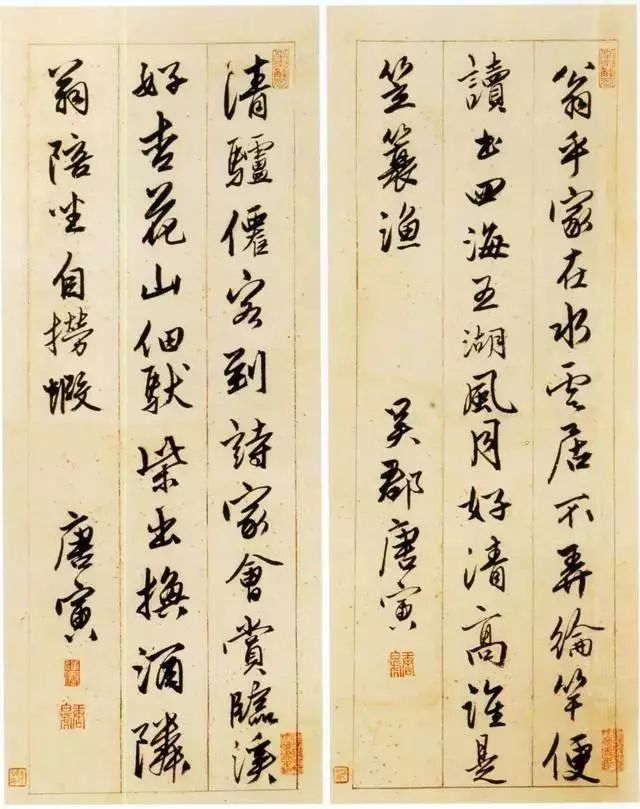 翁乎家在水雲居不弄綸竿便
讀書四海五湖風月好清高誰是
笠簑漁
吳郡唐寅
清驢僊客到詩家會賞臨溪
好杏花山佃馱柴出換酒隣
翁陪坐自撈蝦
唐寅